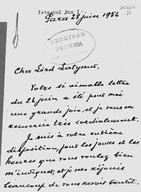 Istanbul
Paris 28 juin 1956
RECEIVED
Cher Lord Latymer,
Votre si aimable lettre
du 21 juin a été pour moi
une grande joie, et je vous en
remercie très cordialement.
Je suis à votre entière
disposition, tous les jours et les
heures que vous voulez bien
m'indiquer, et je me réjouis
beaucoup de vous revoir bientôt.